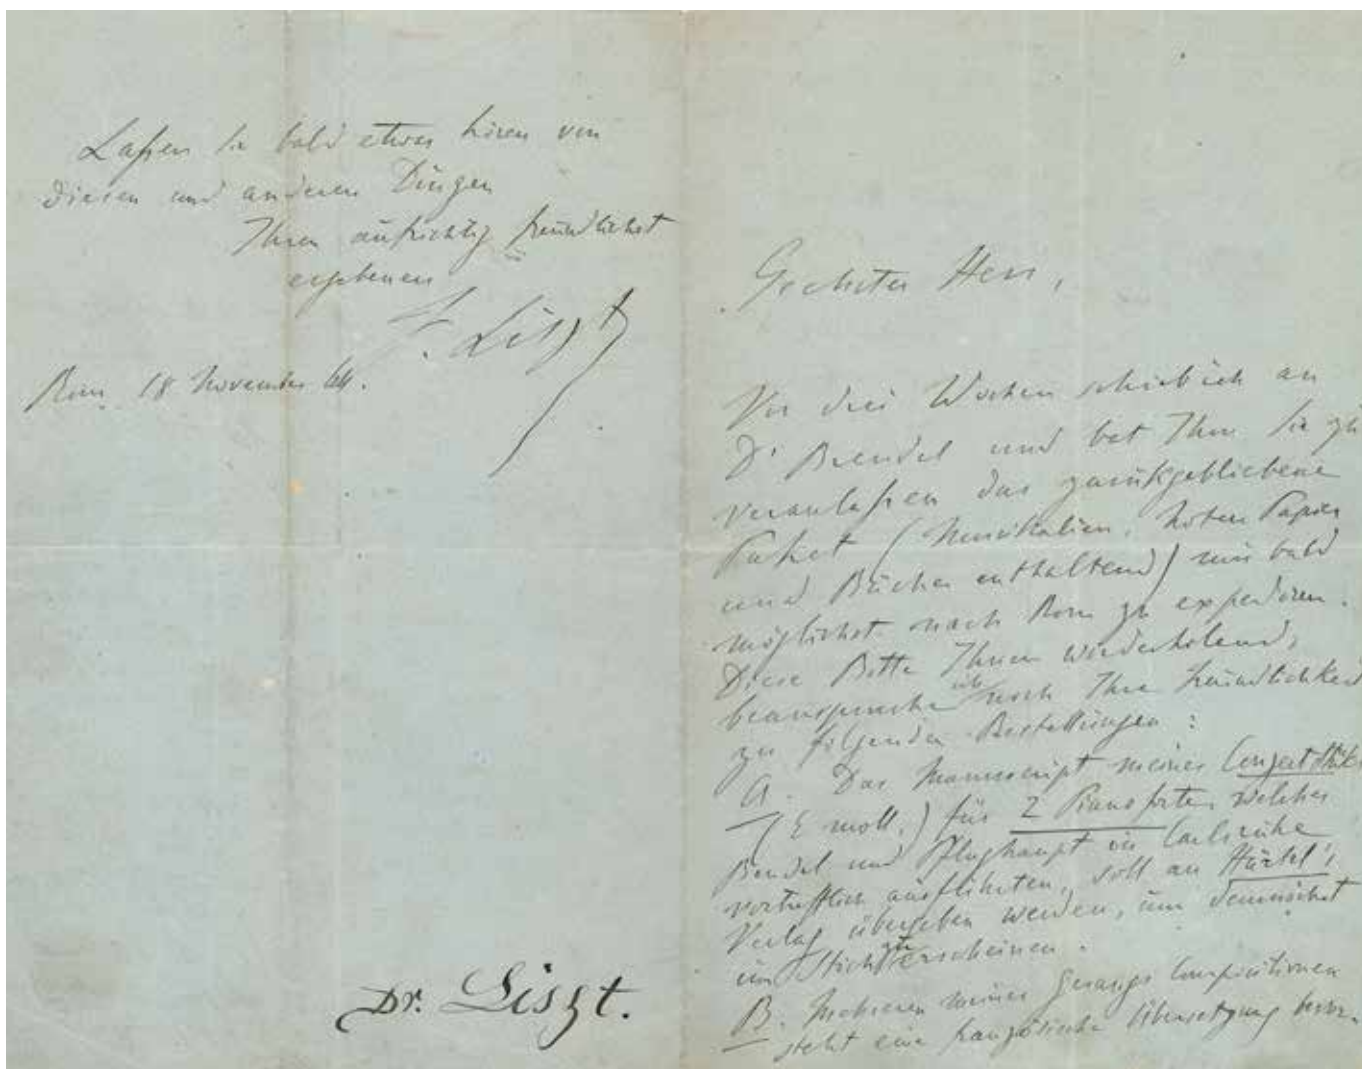 Laßen Sie bald etwas hören von
diesen und anderen Dingen
Ihren aufrichtig freundlichst
ergebenen
F. Liszt
Rom 18 November 64.
Dr. Liszt.
Geehrter Herr,
Vor drei Wochen schrieb ich an
Dr Brendel und bat Ihm Sie zu
veranlaßen das zurükgebliebene
Paket (Musikalien, Noten Papier
und Bücher enthaltend) mir bald
möglichst nach Rom zu expediren.
Diese Bitte Ihnen wiederholend,
beanspruche ich noch Ihre Freundlichkeit
zu folgenden Bestellungen:
A. Das Manuscript meines Conzertstüks
(E moll.) für 2 Pianoforte, welches
Bendel und Pflughaupt in Carlsruhe
vortrefflich ausführten, soll an Härtel's
Verlag übergeben werden, um demnächst
im Stich zu erscheinen.
B. Mehreren meiner Gesangs Compositionen
steht eine französische Übersetzung bevor.